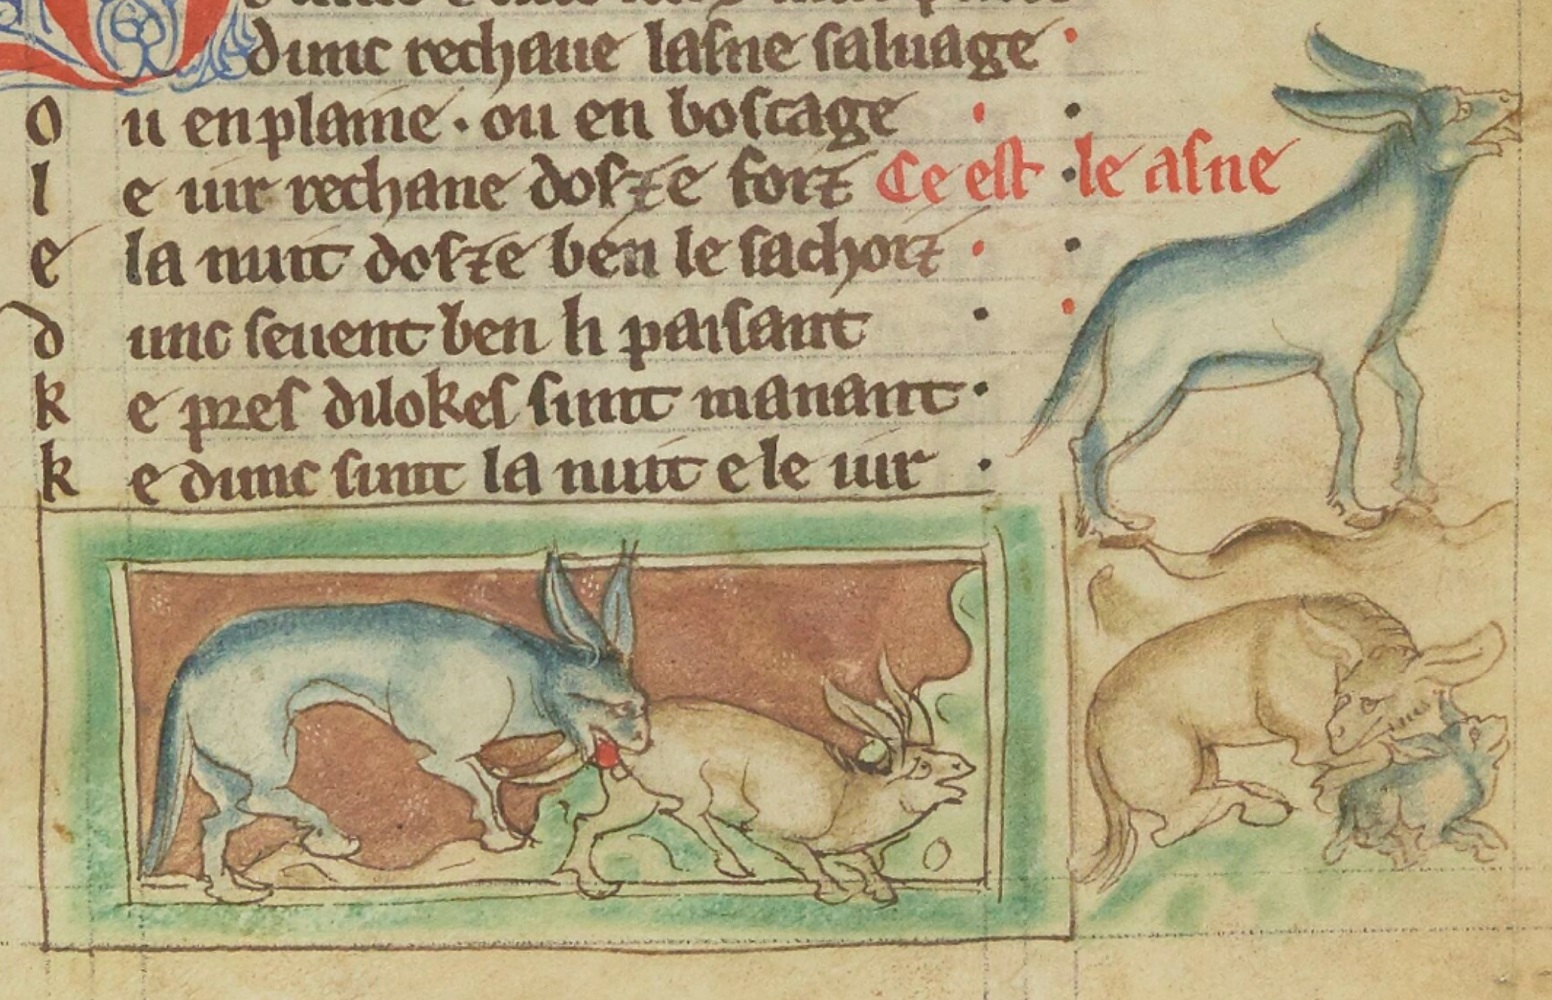 dunc rechane lasne saluage
ou en plaine · ou en boscage
le iur rechane dosze forz Ce est le asne
e la nuit dosze ben le sachorz
dunc seuent ben li paisant
ke pres dilokes sunt manant
ke dunc sunt la nuit e le iur